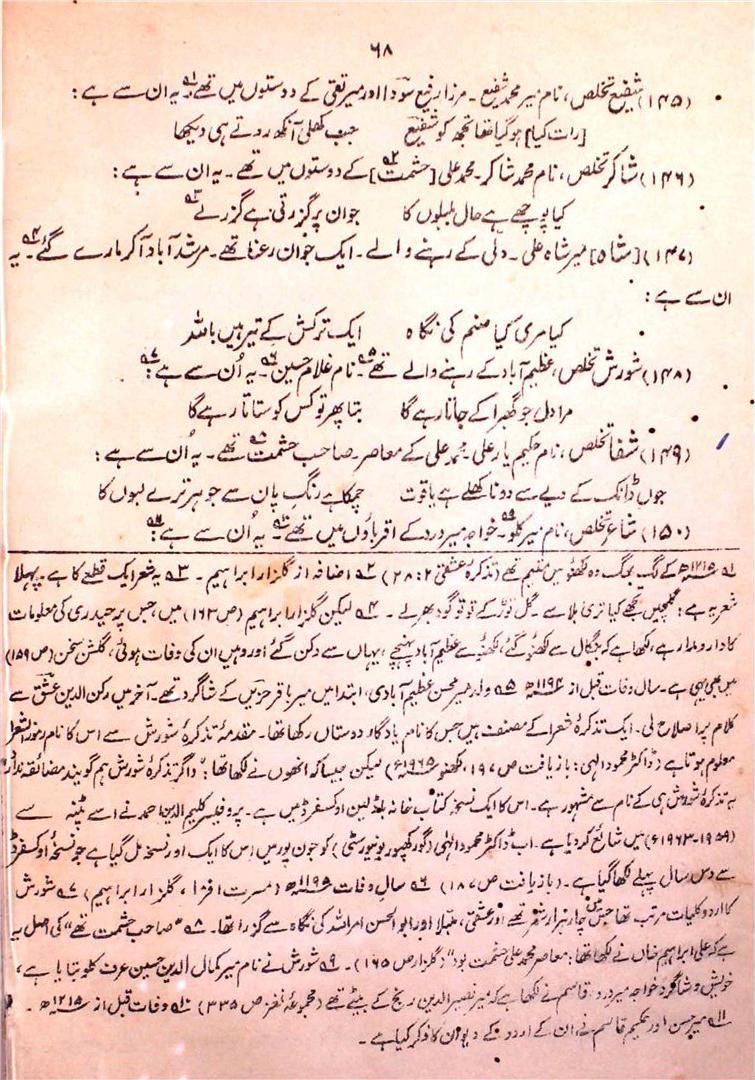 ۶۸
(۱۴۵) شفیع تخلص، نام میر محمد شفیع ۔ مرزا رفیع سوؔدا اور میر تقی کے دوستوں میں تھے۔ ؎۱ یہ ان سے ہے :
[رات کیا] ہو گیا تھا تجھ کو شفیعؔ جب کھلی آنکھ روتے ہی دیکھا
(۱۴۶) شاکر تخلص، نام محمد شاکر۔ محمد علی [حشمت] ؎۲ کے دوستوں میں تھے ۔ یہ ان سے ہے :
کیا پوچھے ہے حال بلبلوں کا جو ان پر گزرتی ہے گزر لے ؎۳
(۱۴۷) [شاہ] میر شاہ علی ۔ دلی کے رہنے والے ۔ ایک جوان رعنا تھے۔ مرشد آباد آکر مارے گئے۔ ؎۴ یہ
ان سے ہے :
کیا مری کیا صنم کی نگاہ ایک ترکش کے تیر ہیں باللہ
(۱۴۸) شورش تخلص، عظیم آباد کے رہنے والے تھے ؎۵۔ نام غلام حسین ؎۶۔ یہ اُن سے ہے ؎۷ :
مرا دل جو گھبرا کے جاتا رہے گا بتا پھر تو کس کو ستاتا رہے گا
(۱۴۹) شفا تخلص، نام حکیم یار علی ۔ محمد علی کے معاصر۔ صاحب حشمت ؎۸ تھے ۔ یہ اُن سے ہے :
جوں ڈانک کے دیے سے دونا کھلے ہے یاقوت چمکا ہے رنگِ پان سے جوہر ترے لبوں کا
(۱۵۰) شاعر تخلص، نام میر کلو ؎۹۔ خواجہ میر درد کے اقرباؤں میں تھے ؎۱۰۔ یہ اُن سے ہے ؎۱۱ :
؎۱ ۱۲۱۵ھ کے لگ بھگ وہ لکھنؤ میں مقیم تھے (تذکرۂ عشقی ۲ : ۲۸) ؎۲ اضافہ از گلزار ابراہیم ۔ ؎۳ یہ شعر ایک قطعے کا ہے ۔ پہلا
شعر یہ ہے : گلچیں تجھے کیا تری بلا سے ۔ گل توڑ کے تو تو گود بھر لے ۔ ؎۴ لیکن گلزار ابراہیم (ص ۱۶۳) میں، جس پر حیدری کی معلومات
کا دار و مدار ہے، لکھا ہے کہ بنگال سے لکھنؤ گئے، لکھنؤ سے عظیم آباد پہنچے، یہاں سے دکن گئے اور وہیں ان کی وفات ہوئی، گلشن سخن (ص ۱۵۹)
میں بھی یہی ہے ۔ سال وفات قبل از ۱۱۹۴ھ ؎۵ ولد میر محسن عظیم آبادی، ابتدا میں میر باقر حزیں کے شاگرد تھے۔ آخر میں رکن الدین عشق سے
کلام پر اصلاح لی۔ ایک تذکرۂ شعرا کے مصنف ہیں جس کا نام یادگار دوستاں رکھا تھا۔ مقدمۂ تذکرۂ شورش سے اس کا نام رموز الشعرا
معلوم ہوتا ہے (ڈاکٹر محمود الٰہی : بازیافت ص ۱۹۷، لکھنو ۱۹۶۵ء) لیکن جیسا کہ انھوں نے لکھا تھا : "و اگر تذکرۂ شورش ہم گویند مضائقہ ندارد"
یہ تذکرۂ شورش ہی کے نام سے مشہور ہے۔ اس کا ایک نسخہ کتاب خانہ باڈلین اوکسفرڈ میں ہے ۔ پروفیسر کلیم الدین احمد نے اسے پٹنہ سے
(۱۹۵۹-۱۹۶۳ء) میں شائع کر دیا ہے ۔ اب ڈاکٹر محمود الٰہی (گورکھپور یونیورسٹی) کو جون پور میں اس کا ایک اور نسخہ مل گیا ہے جو نسخۂ اوکسفرڈ
سے دس سال پہلے لکھا گیا ہے ۔ (بازیافت ص ۱۸۷) ؎۶ سال وفات ۱۱۹۵ھ (مسرت افزا، گلزار ابراہیم) ؎۷ شورش
کا اردو کلیات مرتب تھا جس میں چار ہزار شعر تھے اور عشقی، مبتلا اور ابوالحسن امر اللہ کی نگاہ سے گزرا تھا۔ ؎۸ "صاحب حشمت تھے" کی اصل یہ
ہے کہ علی ابراہیم خاں نے لکھا تھا : معاصر محمد علی حشمت بود" (گلزار ص ۱۶۵) ۔ ؎۹ شورش نے نام میر کمال الدین حسین عرف کلو بتایا ہے ،
خویش و شاگرد خواجہ میر درد، قاسم نے لکھا ہے کہ میر نصیر الدین رنج کے بیٹے تھے (مجموعۂ نغز ص ۳۳۵) ؎۱۰ وفات قبل از ۱۲۱۵ھ ۔
؎۱۱ میر حسن اور حکیم قاسم نے ان کے اردو کے دیوان کا ذکر کیا ہے ۔